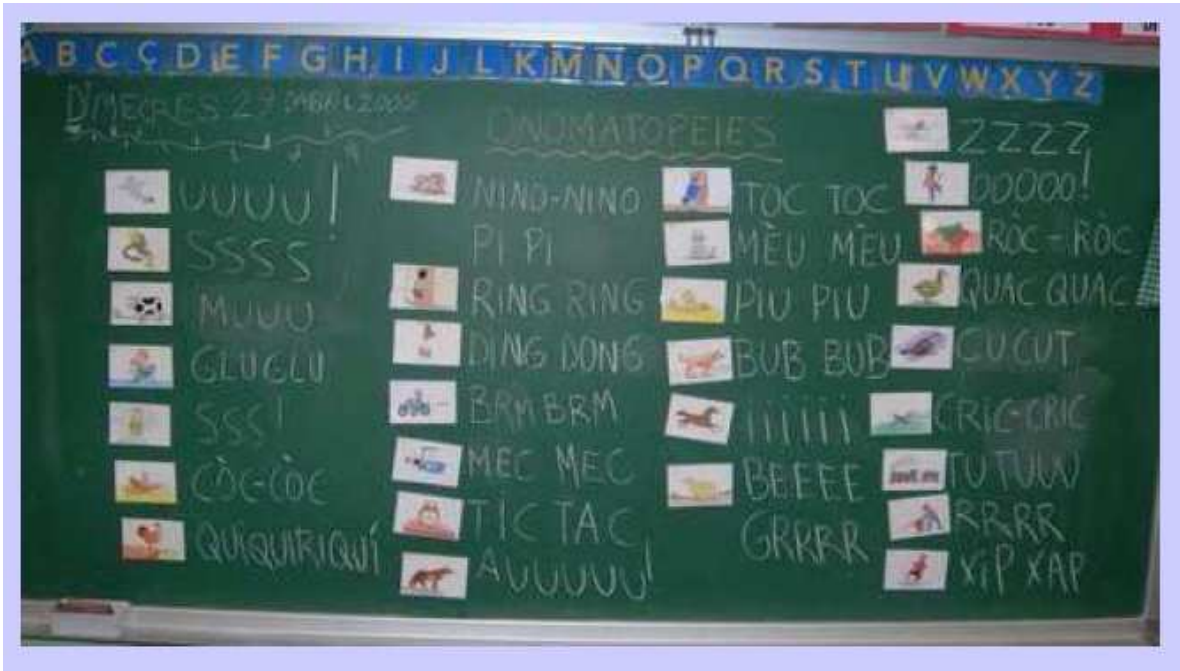 A B C Ç D E F G H I J L K M N O P Q R S T U V W X Y Z
DIMECRES 29 D'ABRIL 2009
ONOMATOPEIES
UUUU!
SSSS
MUUU
GLUGLU
SSS!
CÒC-CÒC
QUIQUIRIQUÍ
NINO-NINO
PI PI
RING RING
DING DONG
BRM BRM
MEC MEC
TIC TAC
AUUUUU!
TOC TOC
MÈU MÈU
PIU PIU
BUB BUB
IIIIII
BEEEE
GRRRR
ZZZZ
OOOOO!
RÒC-RÒC
QUAC QUAC
CUCUT
CRIC-CRIC
TU TUUU
RRRR
XIP XAP